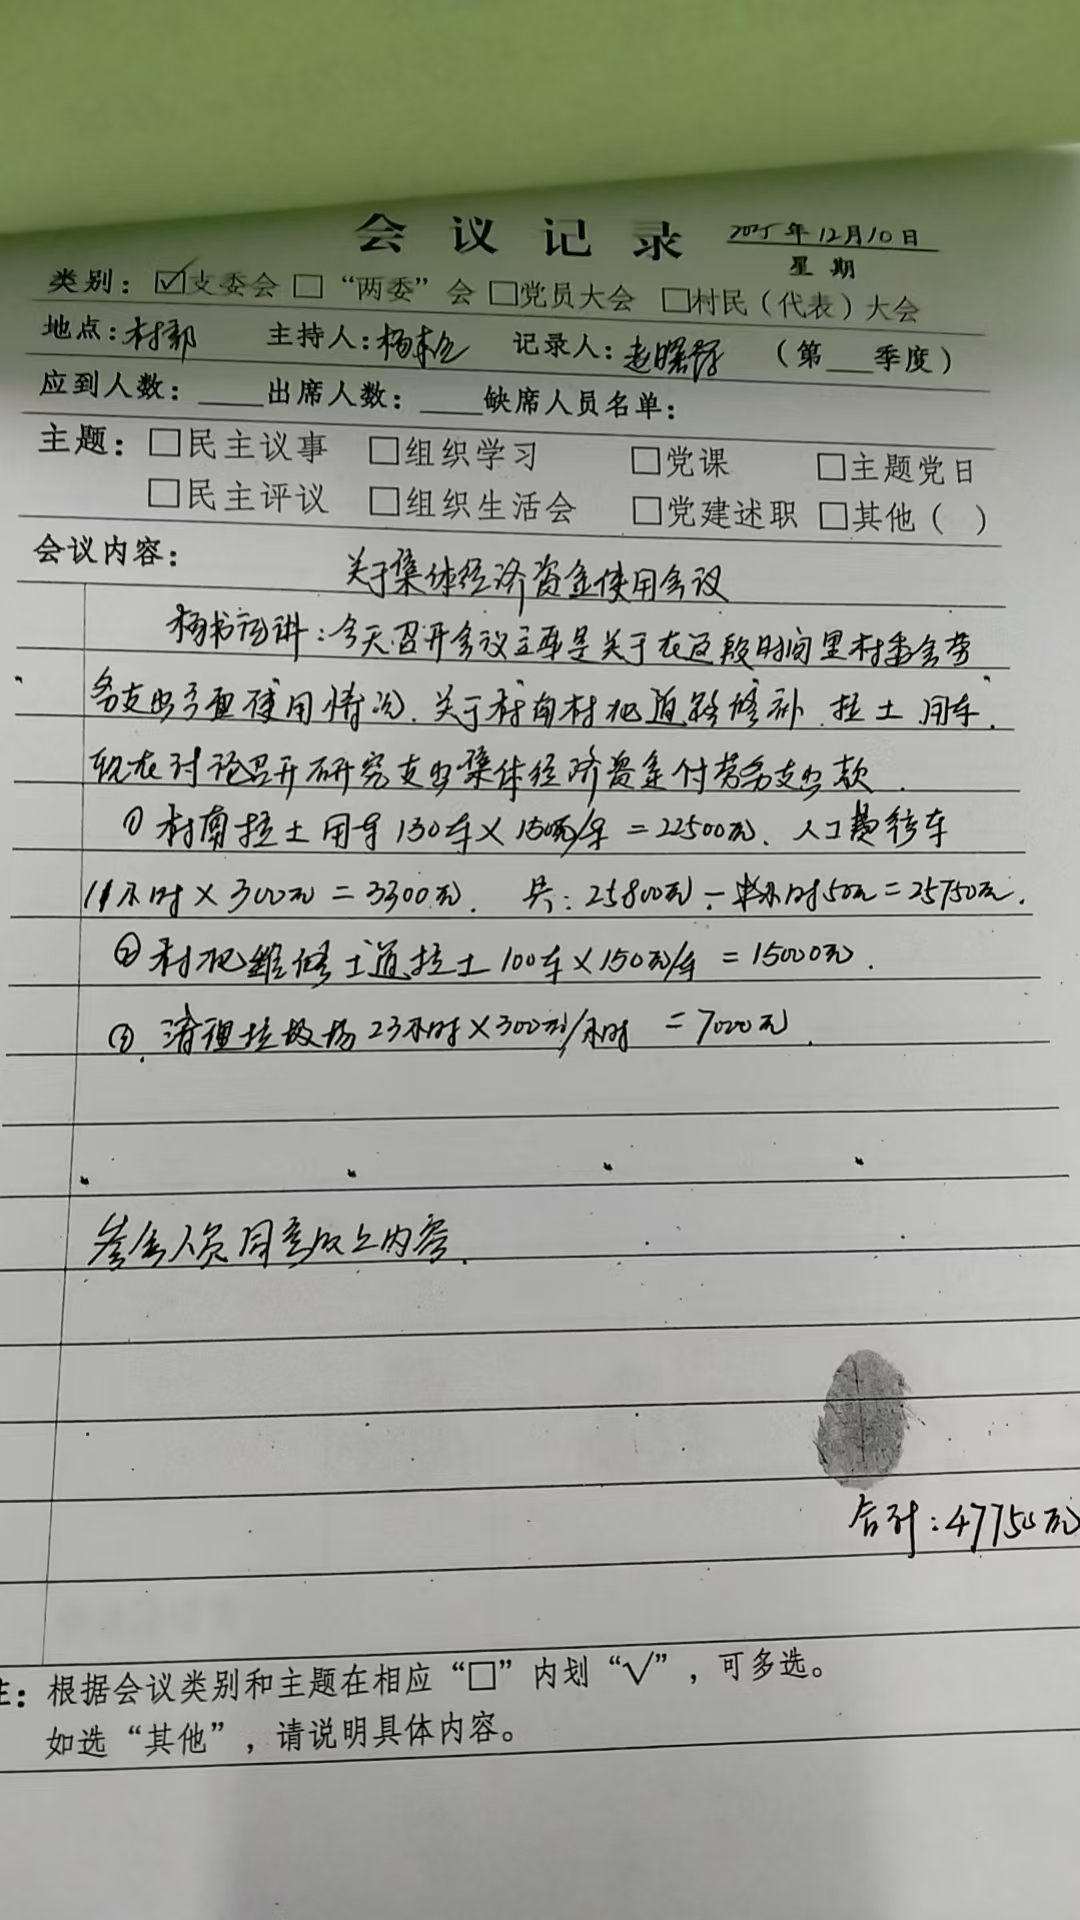 会议记录 2025年12月10日
星期
类别：☑支委会 □“两委”会 □党员大会 □村民（代表）大会
地点：村部 主持人：杨 记录人：赵曙 （第___季度）
应到人数：____出席人数：____缺席人员名单：
主题：□民主议事 □组织学习 □党课 □主题党日
□民主评议 □组织生活会 □党建述职 □其他（ ）
会议内容：
关于集体经济资金使用会议
杨书记讲：今天召开会议主要是关于在这段时间里村委会劳
务支出方面使用情况、关于村南村北道路修补、拉土用车、
现在讨论召开研究支出集体经济资金付劳务支出款.
①村南拉土用车150车×150元/车=22500元、人工费铲车
11小时×300元=3300元. 共：25800元-半小时50元=25750元.
②村北维修土道拉土100车×150元/车=15000元.
③.清理垃圾场23小时×300元/小时 =7000元.
参会人员同意以上内容.
合计：47750元
注：根据会议类别和主题在相应“□”内划“√”，可多选。
如选“其他”，请说明具体内容。